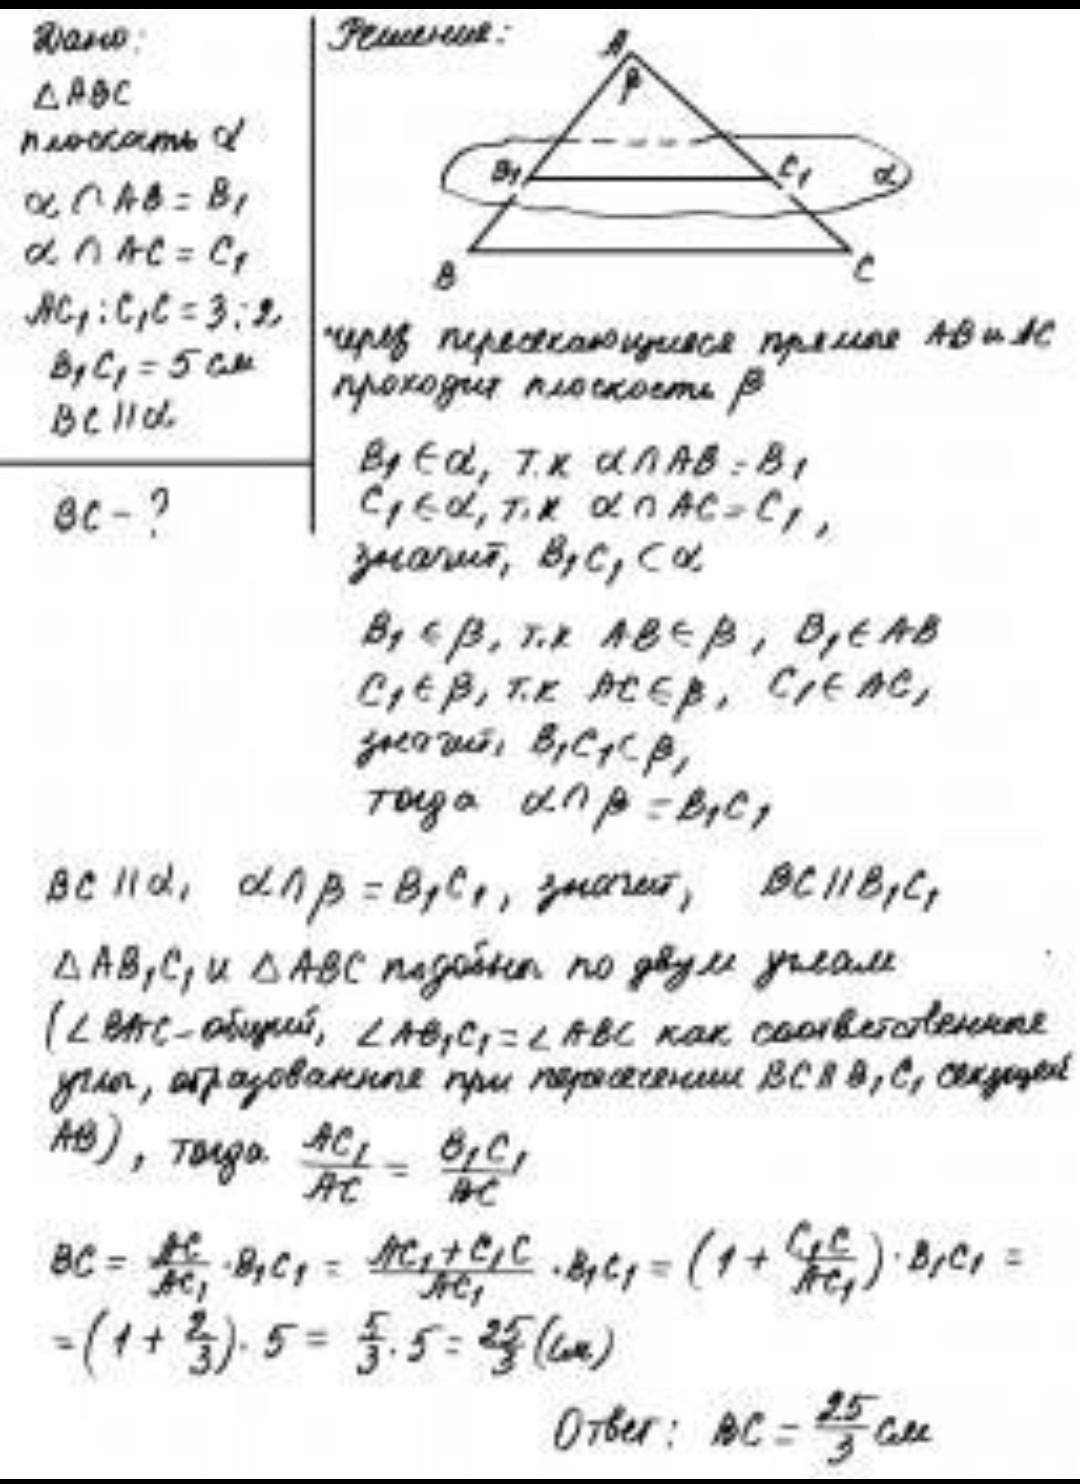 Дано:
△ABC
плоскость α
α ∩ AB = B₁
α ∩ AC = C₁
AC₁ : C₁C = 3 : 2,
B₁C₁ = 5 см
BC || α
BC - ?
Решение:
A
β
B₁
C₁
α
B
C
через пересекающиеся прямые AB и AC
проходит плоскость β
B₁ ∈ α, т.к α ∩ AB = B₁
C₁ ∈ α, т.к α ∩ AC = C₁,
значит, B₁C₁ ⊂ α
B₁ ∈ β, т.к AB ∈ β, B₁ ∈ AB
C₁ ∈ β, т.к AC ∈ β, C₁ ∈ AC,
значит, B₁C₁ ⊂ β,
тогда α ∩ β = B₁C₁
BC || α, α ∩ β = B₁C₁, значит, BC || B₁C₁
△AB₁C₁ и △ABC подобны по двум углам
(∠BAC - общий, ∠AB₁C₁ = ∠ABC как соответственные
углы, образованные при пересечении BC и B₁C₁ секущей
AB), тогда AC₁/AC = B₁C₁/BC
BC = AC/AC₁ · B₁C₁ = (AC₁ + C₁C)/AC₁ · B₁C₁ = (1 + C₁C/AC₁) · B₁C₁ =
= (1 + 2/3) · 5 = 5/3 · 5 = 25/3 (см)
Ответ: BC = 25/3 см